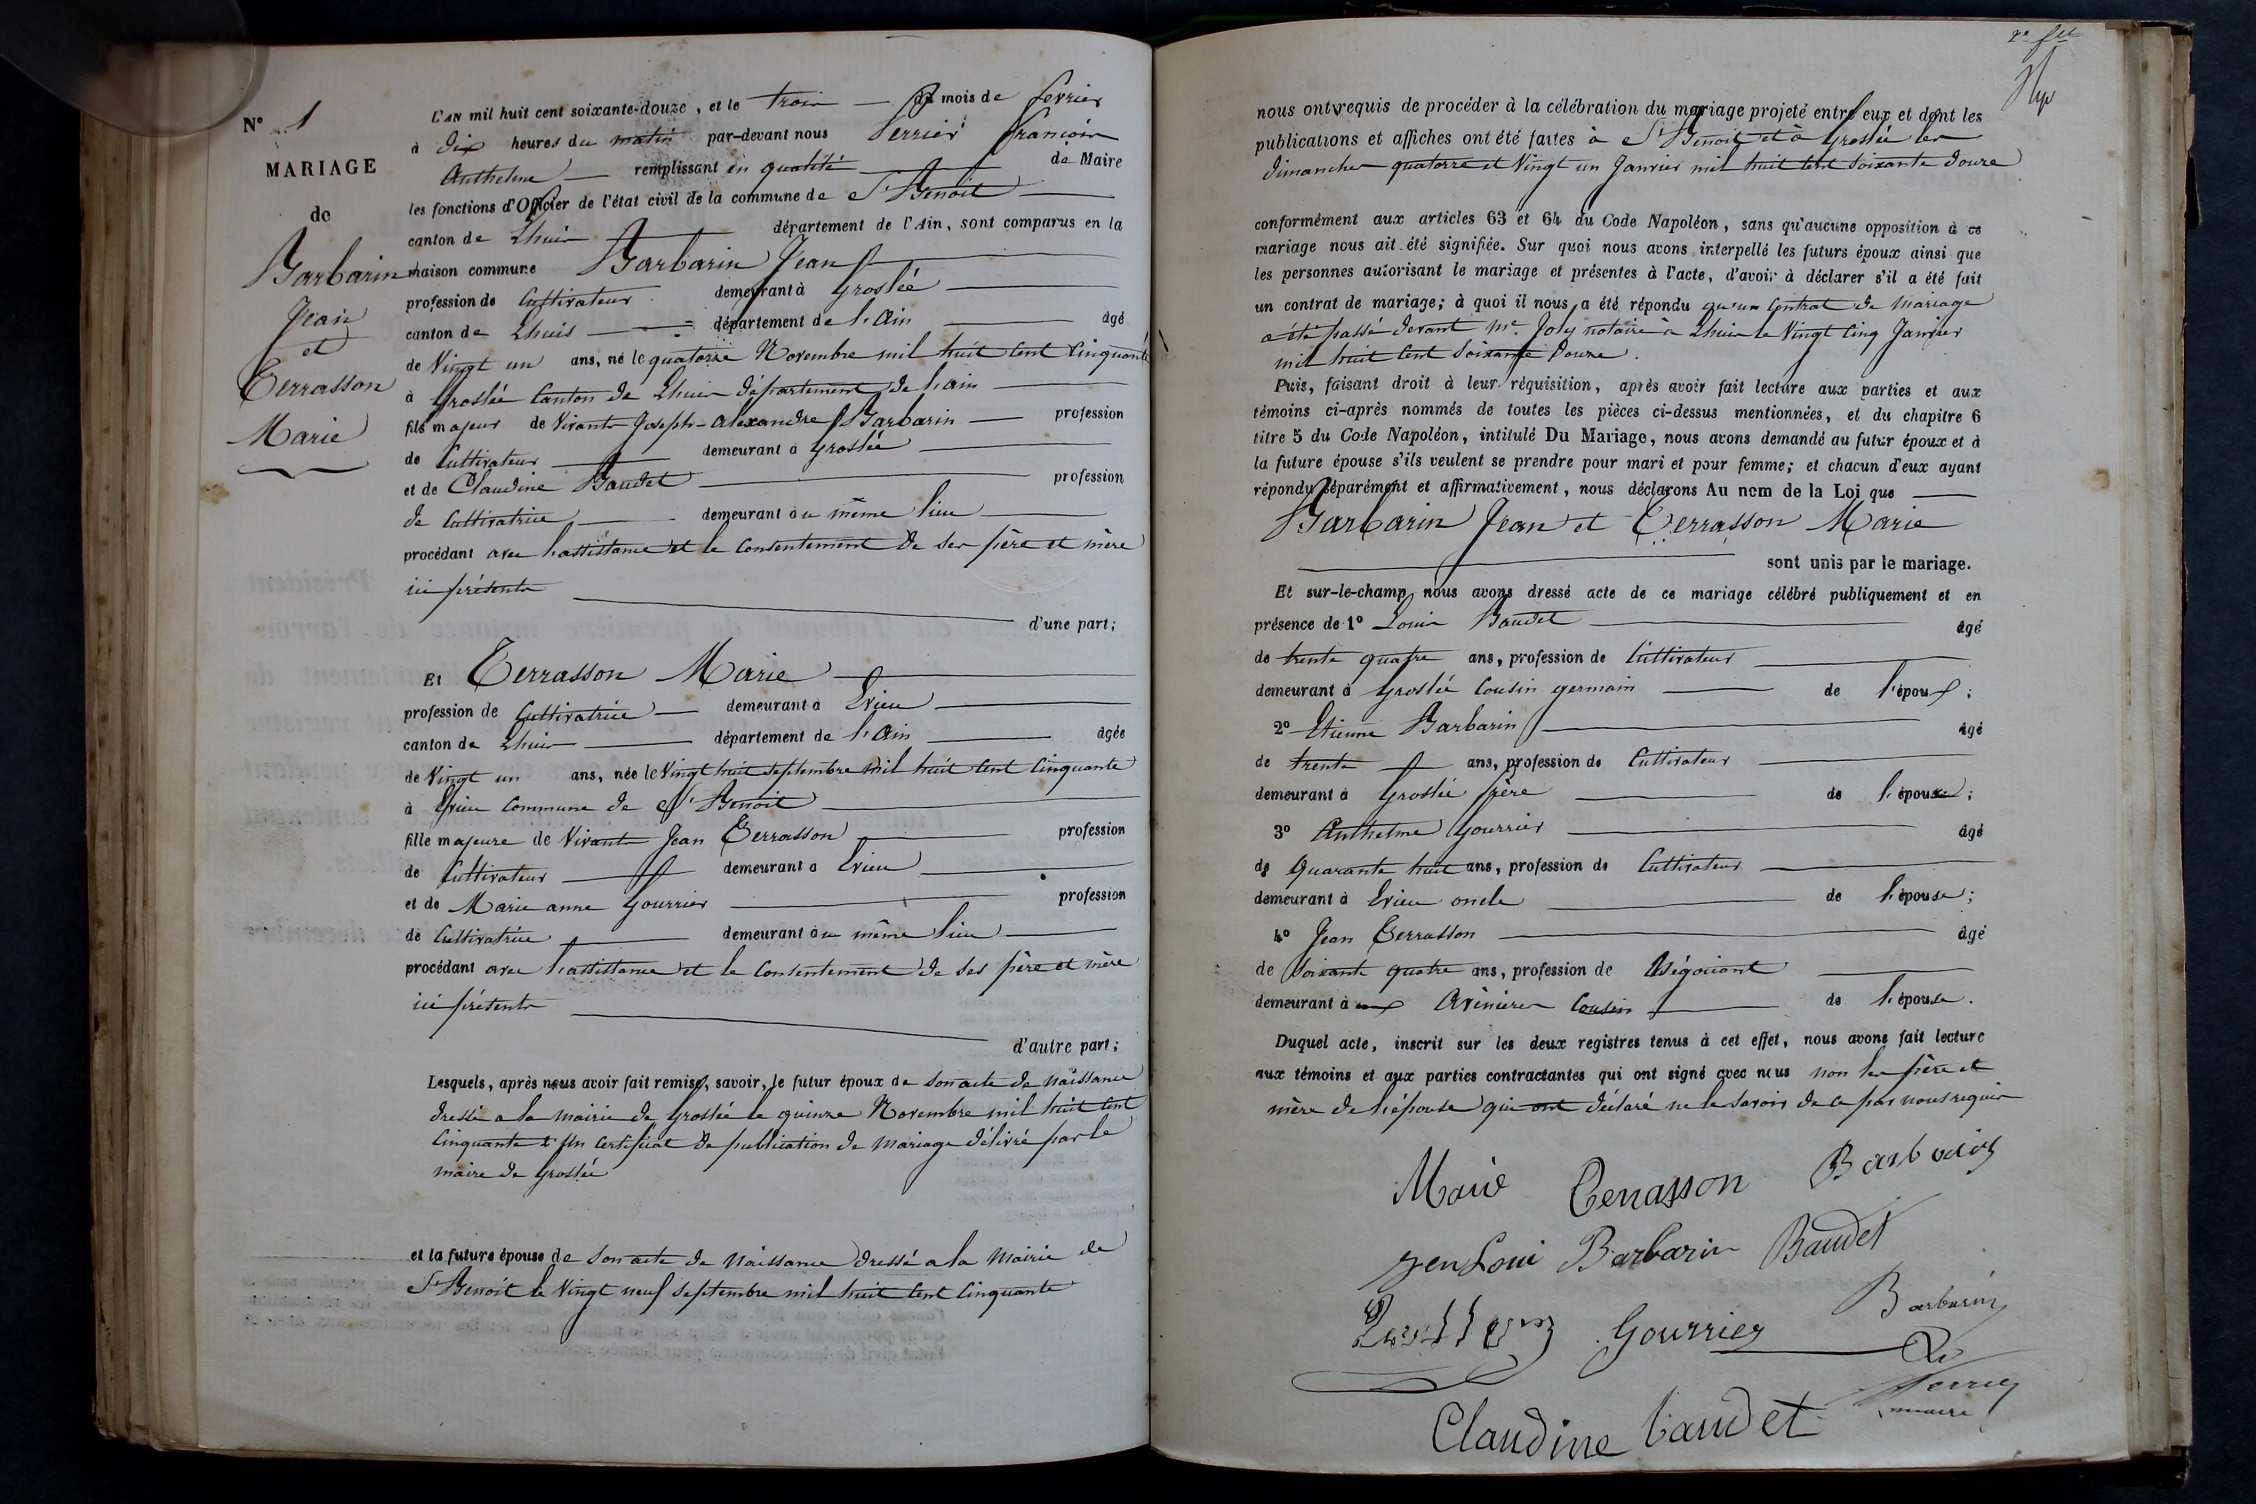 N° 1
MARIAGE
de
Barbarin
Jean
et
Terrasson
Marie
L'AN mil huit cent soixante-douze, et le trois du mois de fevrier
à dix heures du matin par-devant nous Perrier françois
Anthelme remplissant en qualité de Maire
les fonctions d'Officier de l'état civil de la commune de St Benoit
canton de Lhuis département de l'Ain, sont comparus en la
maison commune Barbarin Jean
profession de Cultivateur demeurant à Groslée
canton de Lhuis département de l'Ain âgé
de Vingt un ans, né le quatorze Novembre mil huit cent cinquante
à Groslée Canton de Lhuis département de l'ain
fils majeur de Vivants Joseph-alexandre Barbarin profession
de Cultivateur demeurant à Groslée
et de Claudine Baudet profession
de Cultivatrice demeurant au même lieu
procédant avec l'assistance et le Consentement de ses père et mère
ici présents
d'une part;
Et Terrasson Marie
profession de Cultivatrice demeurant à Evieu
canton de Lhuis département de l'Ain âgée
de Vingt un ans, née le Vingt huit septembre mil huit cent Cinquante
à Evieu Commune de St Benoit
fille majeure de Vivants Jean Terrasson profession
de Cultivateur demeurant à Evieu
et de Marie anne Gourrier profession
de Cultivatrice demeurant au même lieu
procédant avec l'assistance et le Consentement de ses père et mère
ici présents
d'autre part;
Lesquels, après nous avoir fait remise, savoir, le futur époux de son acte de Naissance
dressé a la mairie de Groslée le quinze Novembre mil huit cent
Cinquante & un Certificat de publication de Mariage délivré par le
maire de Groslée
et la future épouse de son acte de Naissance dressé a la Mairie de
St Benoit le Vingt neuf septembre mil huit cent Cinquante
nous ont requis de procéder à la célébration du mariage projeté entre eux et dont les
publications et affiches ont été faites à St Benoit et à Groslée les
dimanches quatorze et Vingt un Janvier mil huit cent soixante douze
conformément aux articles 63 et 64 du Code Napoléon, sans qu'aucune opposition à ce
mariage nous ait été signifiée. Sur quoi nous avons interpellé les futurs époux ainsi que
les personnes autorisant le mariage et présentes à l'acte, d'avoir à déclarer s'il a été fait
un contrat de mariage; à quoi il nous a été répondu qu'un Contrat de Mariage
a été passé devant Me. Joly notaire à Lhuis le Vingt Cinq Janvier
mil huit cent soixante Douze.
Puis, faisant droit à leur réquisition, après avoir fait lecture aux parties et aux
témoins ci-après nommés de toutes les pièces ci-dessus mentionnées, et du chapitre 6
titre 5 du Code Napoléon, intitulé Du Mariage, nous avons demandé au futur époux et à
la future épouse s'ils veulent se prendre pour mari et pour femme; et chacun d'eux ayant
répondu séparément et affirmativement, nous déclarons Au nom de la Loi que
Barbarin Jean et Terrasson Marie
sont unis par le mariage.
Et sur-le-champ nous avons dressé acte de ce mariage célébré publiquement et en
présence de 1° Louis Baudet âgé
de trente quatre ans, profession de Cultivateur
demeurant à Groslée Cousin germain de l'époux;
2° Etienne Barbarin âgé
de trente ans, profession de Cultivateur
demeurant à Groslée frère de l'époux;
3° Anthelme Gourrier âgé
de Quarante huit ans, profession de Cultivateur
demeurant à Evieu oncle de l'épouse;
4° Jean Terrasson âgé
de soixante quatre ans, profession de Négociant
demeurant à aux Avenieres Cousin de l'épouse.
Duquel acte, inscrit sur les deux registres tenus à cet effet, nous avons fait lecture
aux témoins et aux parties contractantes qui ont signé avec nous non les père et
mère de l'épouse qui ont déclaré ne le savoir de ce par nous requis
Marie Terrasson Barbarin
Jen Loui Barbarin Baudet
Gourrier Barbarin
Perrier
maire
Claudine baudet